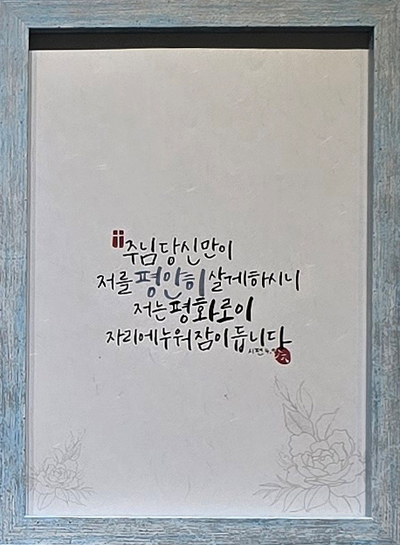 주님 당신만이
저를 평안히 살게하시니
저는 평화로이
자리에 누워 잠이 듭니다
시편 4,9